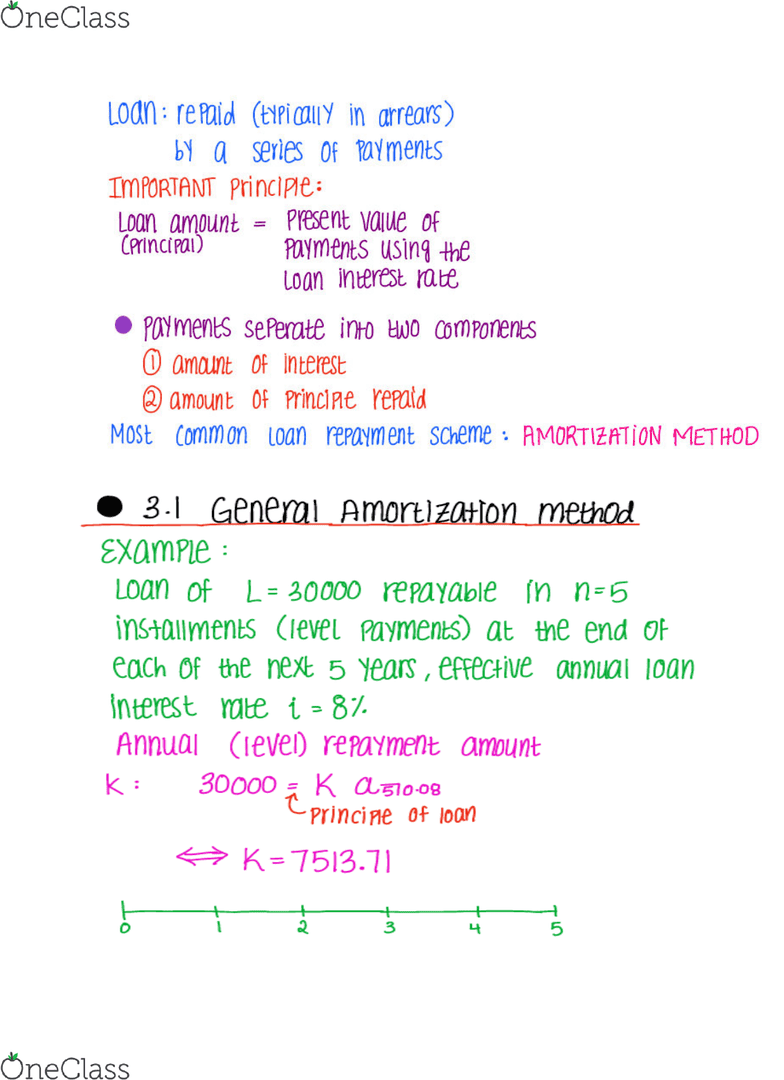 OneClass
Loan: repaid (typically in arrears)
by a series of payments
IMPORTANT principle:
Loan amount = Present value of
(principal) payments using the
loan interest rate
● payments seperate into two components
① amount of interest
② amount of principle repaid
Most common loan repayment scheme: AMORTIZATION METHOD
● 3.1 General Amortization method
Example:
Loan of L=30000 repayable in n=5
installments (level payments) at the end of
each of the next 5 years, effective annual loan
interest rate i=8%
Annual (level) repayment amount
K: 30000 = K a5⏋0.08
principle of loan
⟺ K=7513.71
0 1 2 3 4 5
OneClass